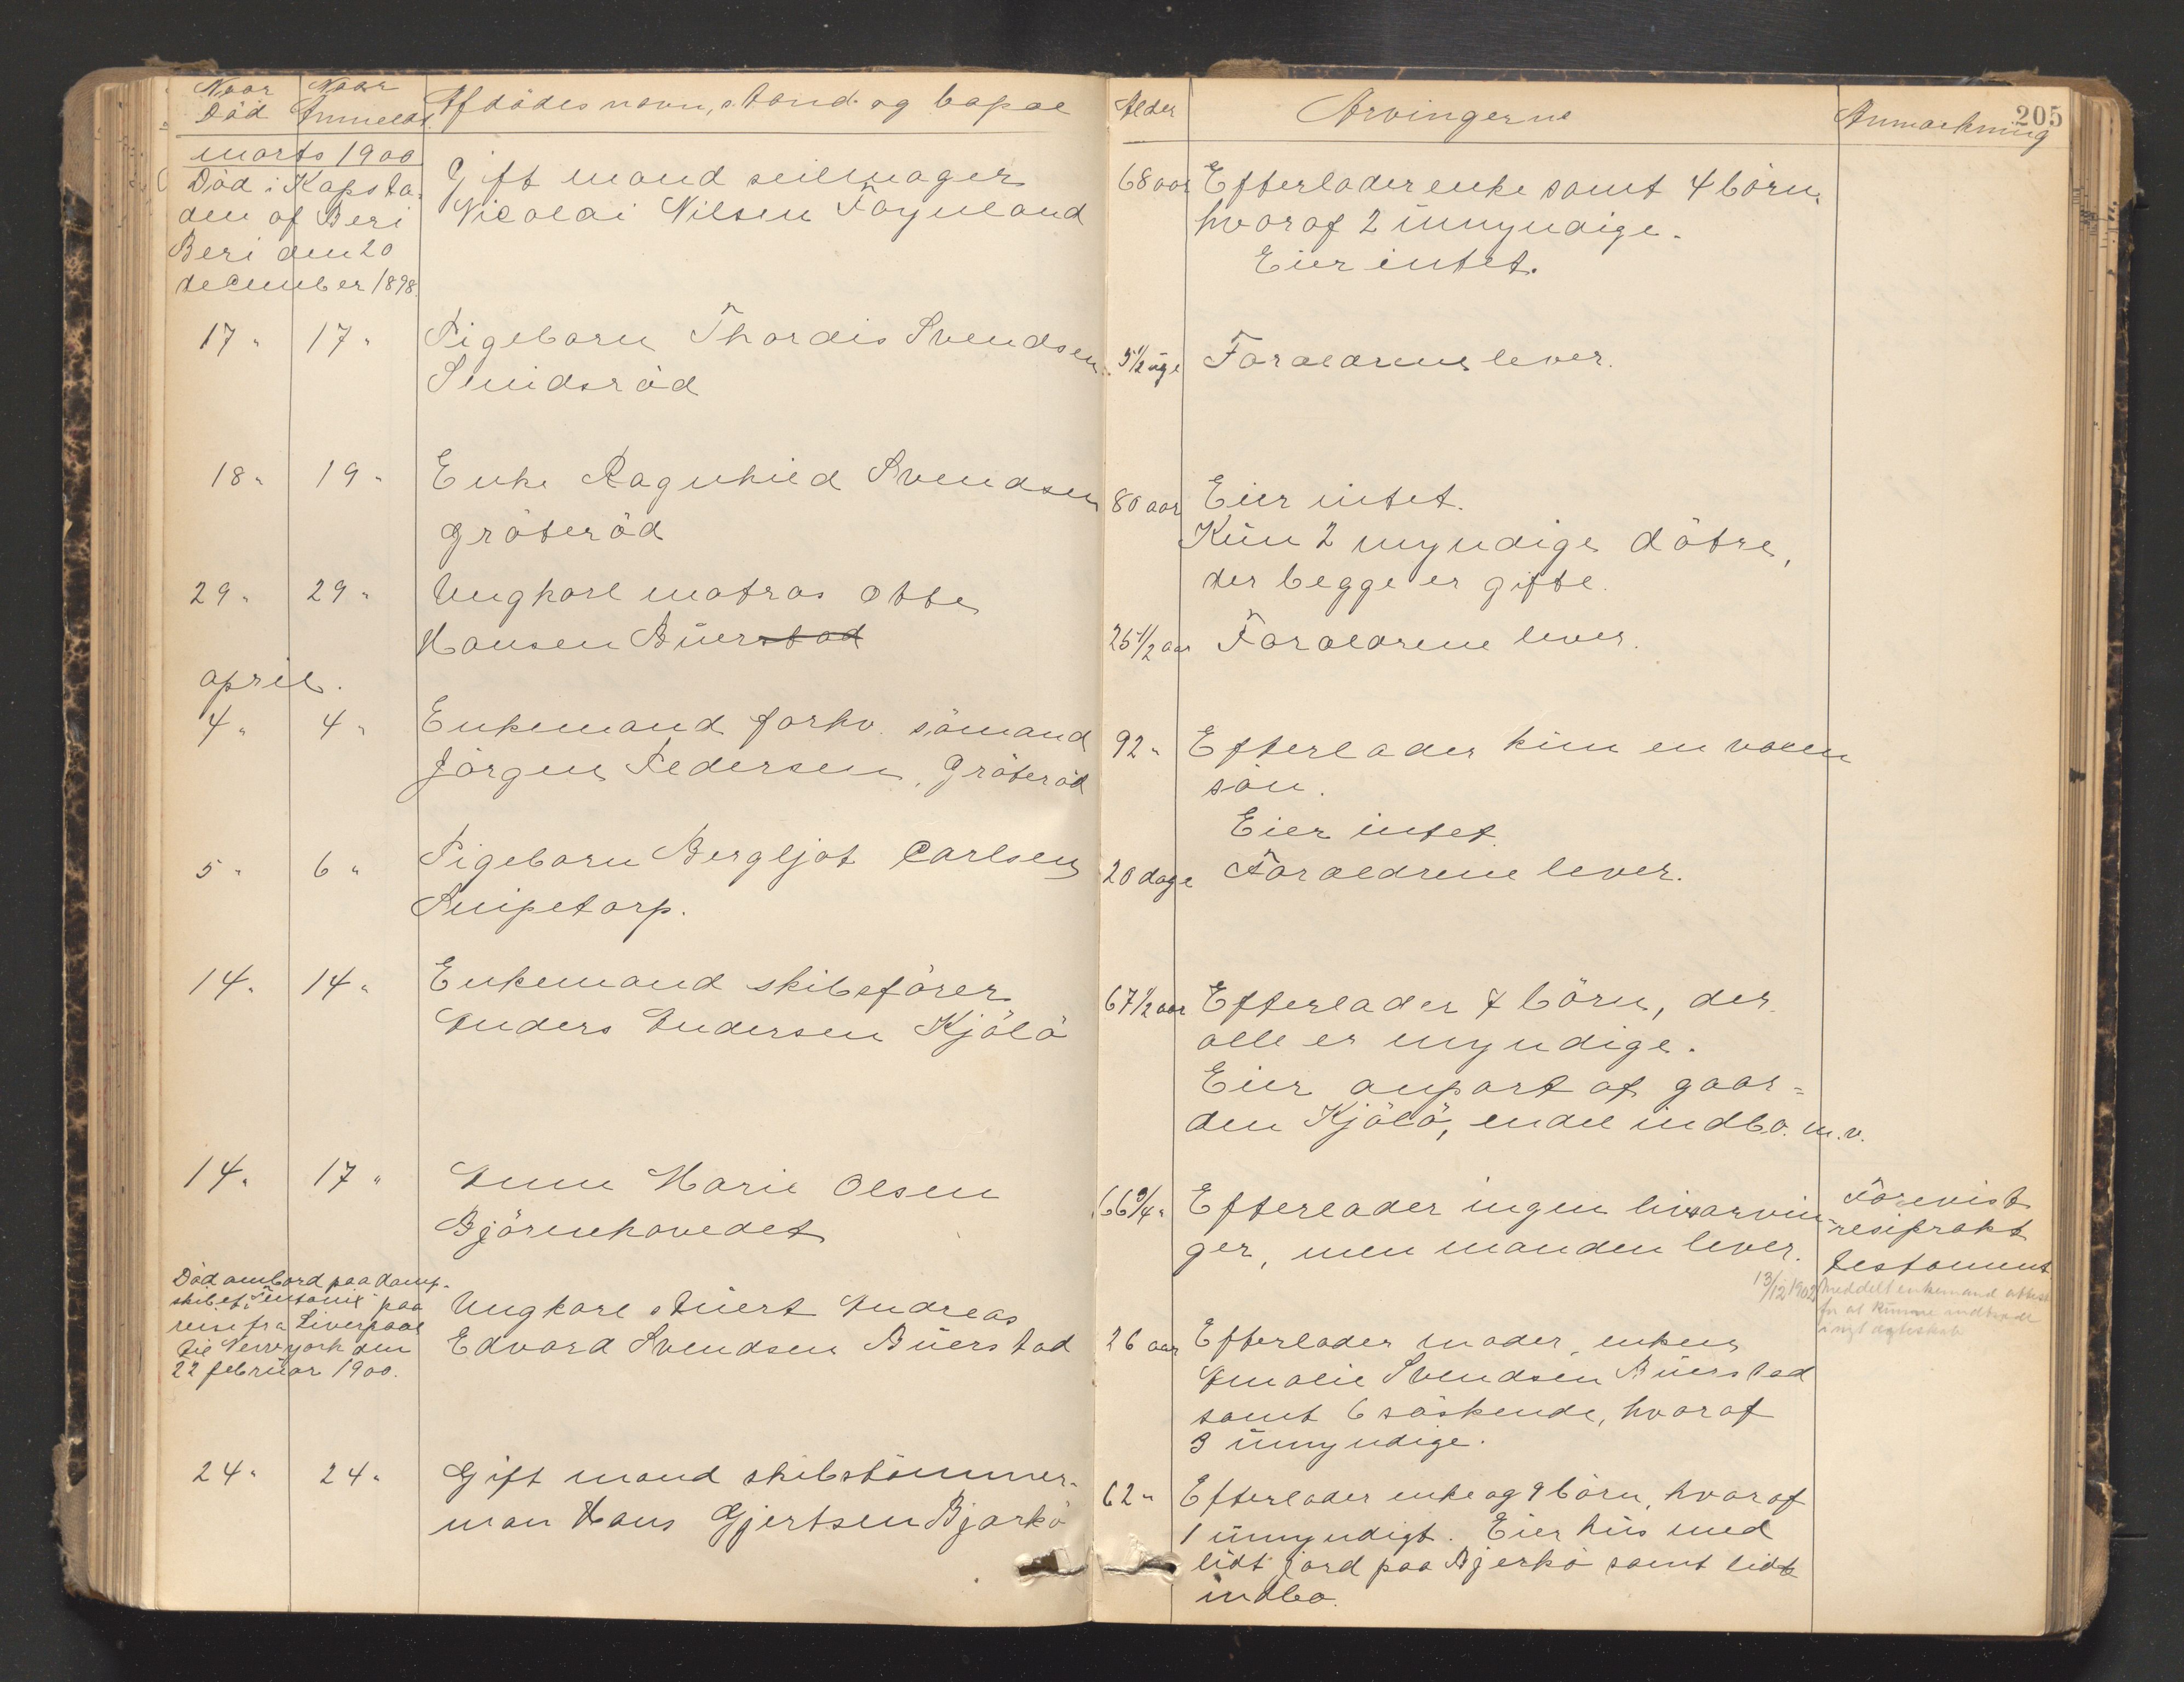 Naar Naar Afdödes navn, stand og bopæl Alder Arvingerne Anmærkning 205
Död Anmeldt
marts 1900
Död i Kapsta-
den af Beri
Beri den 20
december 1898.
Gift mand seilmager
Nicolai Nilsen Föynland
68 aar Efterlader enke samt 4 börn,
hvoraf 2 ümyndige.
Eier intet.
17 " 17 " Pigebarn Thordis Svendsen
Smidsröd
5 1/2 üge Forældrene lever.
18 " 19 " Enke Ragnhild Svendsen
Gröteröd
80 aar Eier intet.
Kün 2 myndige dötre,
der begge er gifte.
29 " 29 " Ungkarl matros Otto
Hansen Büerstad
25 1/2 aar Forældrene lever.
april.
4 " 4 " Enkemand forhv. sömand
Jörgen Pedersen, Gröteröd
92 " Efterlader kün en voxen
sön.
Eier intet.
5 " 6 " Pigebarn Bergljot Carlsen
Snipetorp.
20 dage Forældrene lever.
14 " 14 " Enkemand skibsförer
Anders Andersen Kjölö
67 1/2 aar Efterlader 7 börn, der
alle er myndige.
Eier anpart af gaar=
den Kjölö, endel indbo. m.v.
14 " 17 " Anne Marie Olsen
Björnehovedet
66 3/4 " Efterlader ingen livsarvin-
ger, men manden lever.
Forevist
resiprokt
testament
13/12 1902 Meddelt enkemand attest
for at künne indtræde
i nyt ægteskab
Död ombord paa damp-
skibet "Teutonic" paa
reise fra Liverpool
til Newyork den
22 februar 1900.
Ungkarl stüert Andreas
Edvard Svendsen Büerstad
26 aar Efterlader moder, enken
Amalie Svendsen Büerstad
samt 6 söskende, hvoraf
3 ümyndige.
24 " 24 " Gift mand skibstömmer-
man Hans Gjertsen Bjerkö
62 " Efterlader enke og 9 börn, hvoraf
1 ümyndigt. Eier hüs med
lidt jord paa Bjerkö samt lidt
indbo.